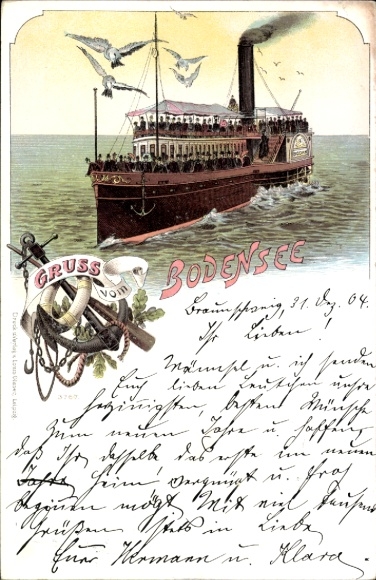 GRUSS
vom
BODENSEE
Braunschweig, 31. Dez. 04.
Ihr Lieben!
u. ich senden
Euch lieben Leutchen unsre
herzinnigsten, besten Wünsche
Zum neuen Jahre u. hoffen,
daß Ihr dasselbe das erste im neuen
Heim vergnügt u. froh
beginnen mögt. Mit viel Tausend
Grüßen stets in Liebe
Euer Hermann u. Klara